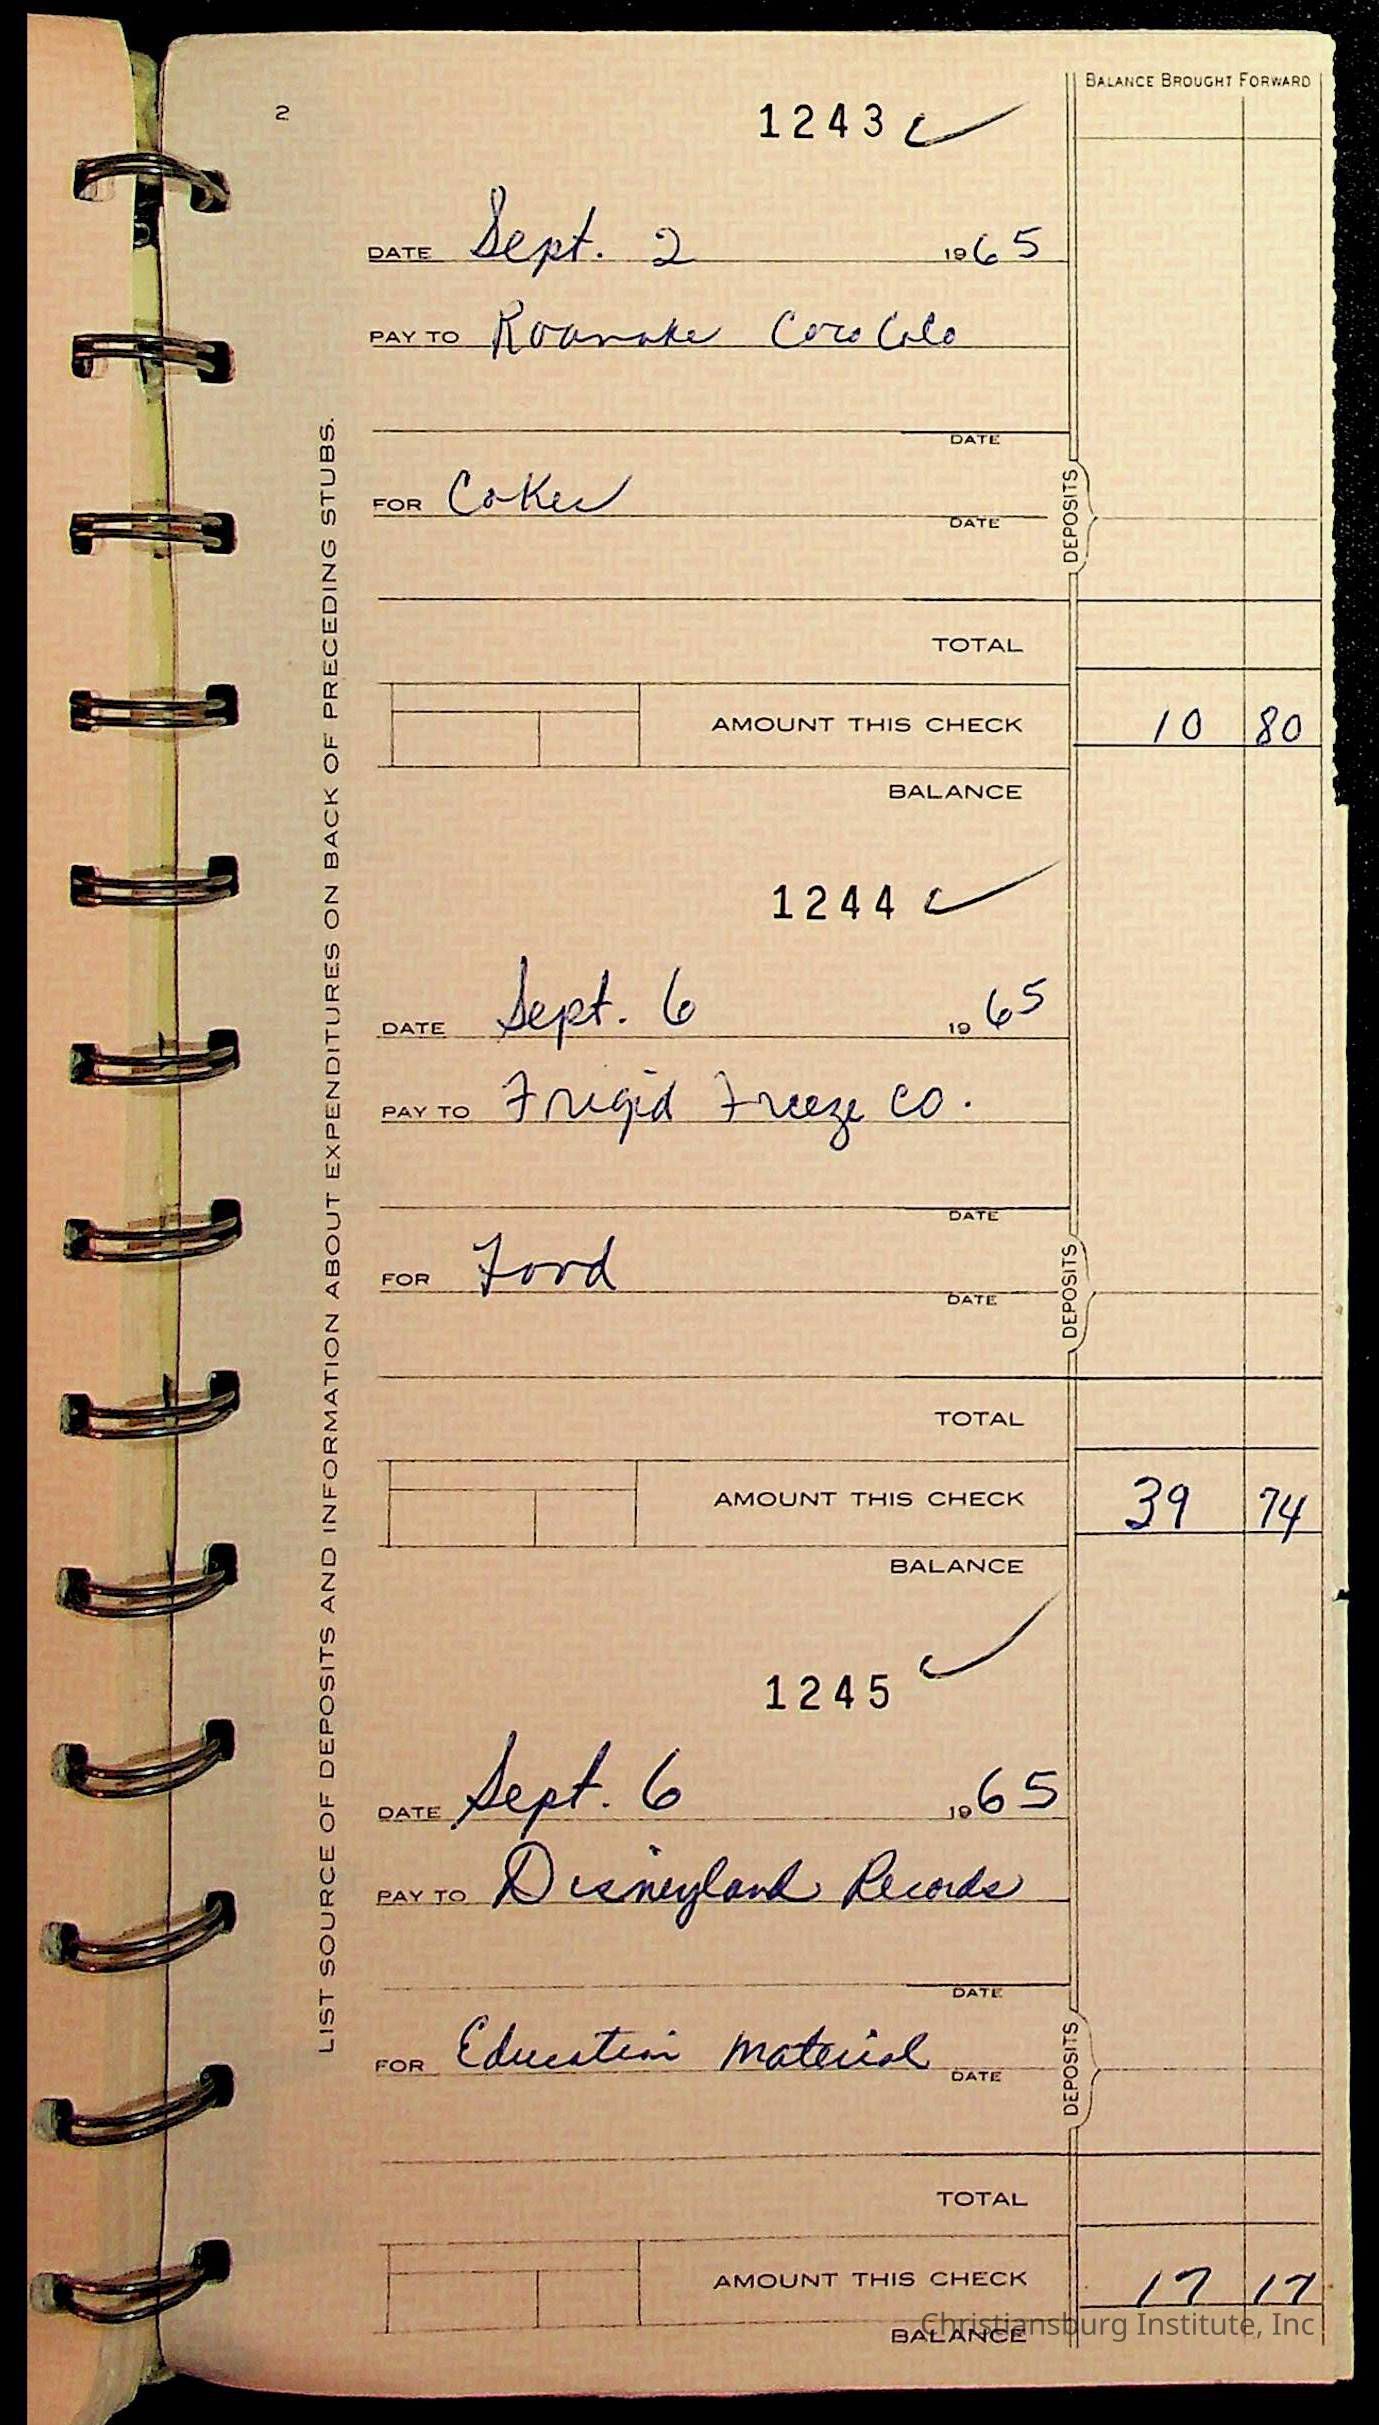 2
BALANCE BROUGHT FORWARD
1243
DATE Sept. 2 1965
PAY TO Roanoke Coca Cola
DATE
FOR Cokes
DATE
DEPOSITS
TOTAL
AMOUNT THIS CHECK 10 80
BALANCE
1244
DATE Sept. 6 1965
PAY TO Frigid Freeze CO.
DATE
FOR Food
DATE
DEPOSITS
TOTAL
AMOUNT THIS CHECK 39 74
BALANCE
1245
DATE Sept. 6 1965
PAY TO Disneyland Records
DATE
FOR Education Material
DATE
DEPOSITS
TOTAL
AMOUNT THIS CHECK 17 17
BALANCE
LIST SOURCE OF DEPOSITS AND INFORMATION ABOUT EXPENDITURES ON BACK OF PRECEDING STUBS.
Christiansburg Institute, Inc